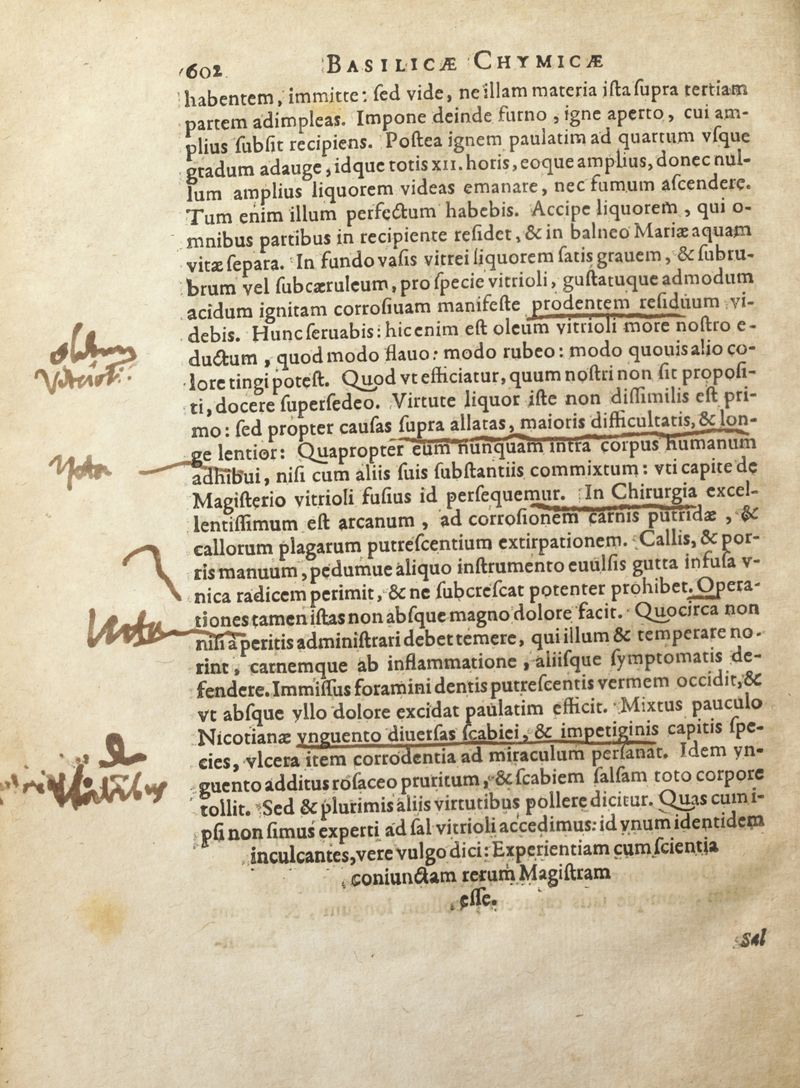 602
BASILICÆ CHYMICÆ
habentem, immitte: ſed vide, ne illam materia iſta ſupra tertiam
partem adimpleas. Impone deinde furno, igne aperto, cui am-
plius ſubſit recipiens. Poſtea ignem paulatim ad quartum vſque
gradum adauge, idque totis XII. horis, eoque amplius, donec nul-
lum amplius liquorem videas emanare, nec fumum aſcendere.
Tum enim illum perfectum habebis. Accipe liquorem, qui o-
mnibus partibus in recipiente reſidet, & in balneo Mariæ aquam
vitæ ſepara. In fundo vaſis vitrei liquorem ſatis grauem, & ſubru-
brum vel ſubcæruleum, pro ſpecie vitrioli, guſtatuque admodum
acidum ignitam corroſiuam manifeſte prodentem reſiduum vi-
debis. Hunc ſeruabis: hic enim eſt oleum vitrioli more noſtro e-
ductum, quod modo flauo: modo rubeo: modo quouis alio co-
lore tingi poteſt. Quod vt efficiatur, quum noſtri non ſit propoſi-
ti, docere ſuperſedeo. Virtute liquor iſte non diſſimilis eſt pri-
mo: ſed propter cauſas ſupra allatas, maioris difficultatis, & lon-
ge lentior: Quapropter eum nunquam intra corpus humanum
adhibui, niſi cum aliis ſuis ſubſtantiis commixtum: vti capite de
Magiſterio vitrioli fuſius id perſequemur. In Chirurgia excel-
lentiſſimum eſt arcanum, ad corroſionem carnis putridæ, &
callorum plagarum putreſcentium extirpationem. Callis, & por-
ris manuum, pedumue aliquo inſtrumento euulſis gutta infuſa v-
nica radicem perimit, & ne ſubcreſcat potenter prohibet. Opera-
tiones tamen iſtas non abſque magno dolore facit. Quocirca non
niſi a peritis adminiſtrari debet temere, qui illum & temperare no-
rint, carnemque ab inflammatione, aliiſque ſymptomatis de-
fendere. Immiſſus foramini dentis putreſcentis vermem occidit, &
vt abſque vllo dolore excidat paulatim efficit. Mixtus pauculo
Nicotianæ vnguento diuerſas ſcabiei, & impetiginis capitis ſpe-
cies, vlcera item corrodentia ad miraculum perſanat. Idem vn-
guento additus roſaceo pruritum, & ſcabiem ſalſam toto corpore
tollit. Sed & plurimis aliis virtutibus pollere dicitur. Quas cum i-
pſi non ſimus experti ad ſal vitrioli accedimus: id vnum identidem
inculcantes, vere vulgo dici: Experientiam cum ſcientia
coniunctam rerum Magiſtram
eſſe.
Sal
Vitrioli
Nota
Nota